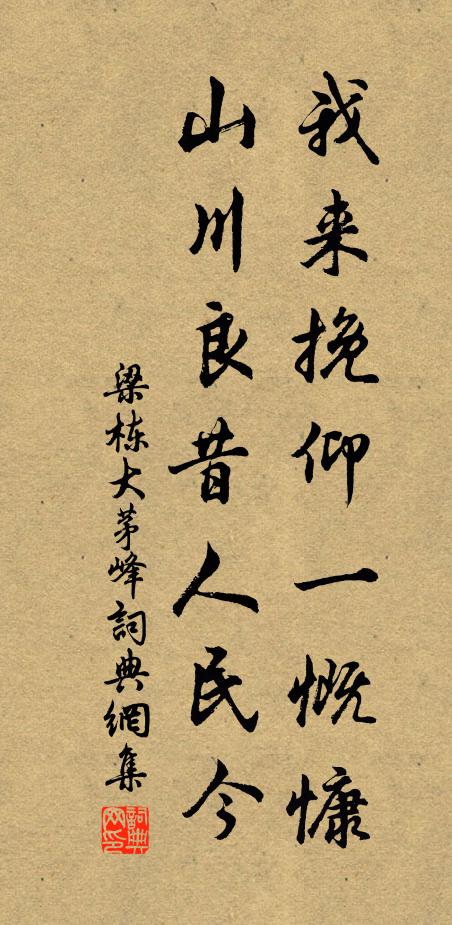 我来挽仰一慨慷
山川良昔人民今
梁栋大茅峰詞典網集
詞典网印